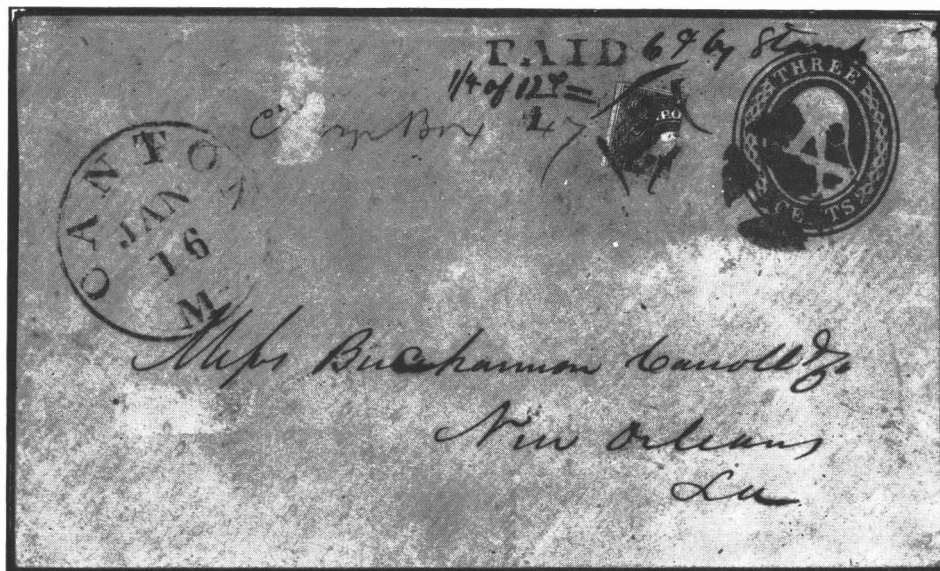 PAID 6¢ by Stamp
1/4 of 12¢ =
Box 47
PO
THREE
CENTS
CANTON
JAN
16
M
Mess Buchannon Carroll & Co
New Orleans
La